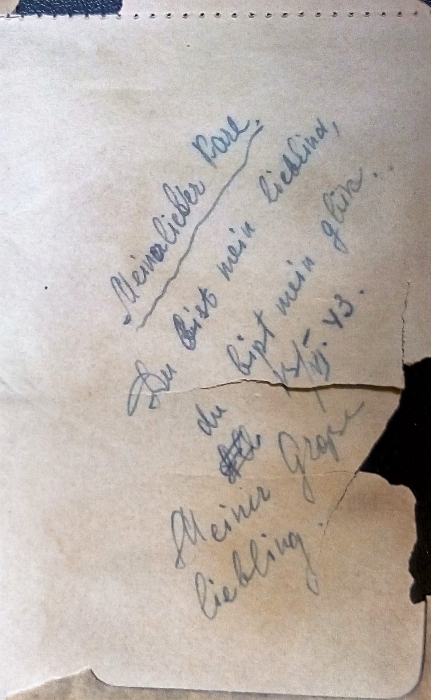 Meinerlieber Pare.
Du bist mein lieblind,
du bist mein glük..
12/VI. 43.
Meiner Grope
liebling.